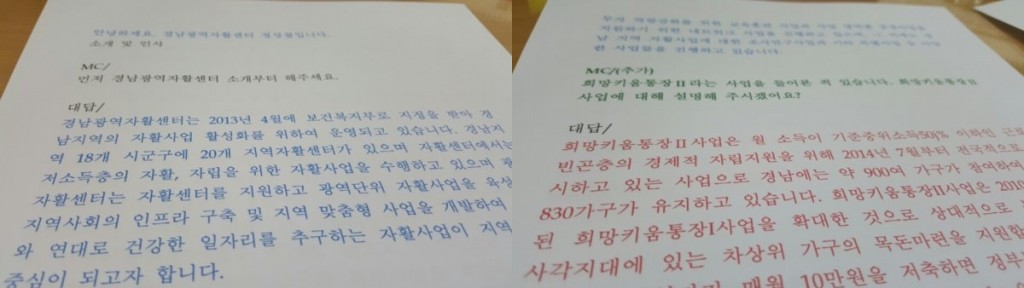 안녕하세요. 경남광역자활센터 정성철입니다.
소개 및 인사
MC/
먼저 경남광역자활센터 소개부터 해주세요.
대답/
경남광역자활센터는 2013년 4월에 보건복지부로 지정을 받아 경
남지역의 자활사업 활성화를 위하여 운영되고 있습니다. 경남지
역 18개 시군구에 20개 지역자활센터가 있으며 자활센터에서는
저소득층의 자활, 자립을 위한 자활사업을 수행하고 있으며 광
자활센터는 자활센터를 지원하고 광역단위 자활사업을 육성
지역사회의 인프라 구축 및 지역 맞춤형 사업을 개발하여
와 연대로 건강한 일자리를 추구하는 자활사업이 지역
중심이 되고자 합니다.
지원하기 위한 네트워크 사업을 진행하고 있으며,
남 지역 자활사업에 대한 조사연구사업과 기타 특화사업 등 다양
한 사업들을 진행하고 있습니다.
MC/(추가)
희망키움통장Ⅱ라는 사업을 들어본 적 있습니다. 희망키움통장Ⅱ
사업에 대해 설명해 주시겠어요?
대답/
희망키움통장Ⅱ사업은 월 소득이 기준중위소득50% 이하인 근로
빈곤층의 경제적 자립지원을 위해 2014년 7월부터 전국적으로
시하고 있는 사업으로 경남에는 약 900여 가구가 참여하여
830가구가 유지하고 있습니다. 희망키움통장Ⅱ사업은 2010
된 희망키움통장Ⅰ사업을 확대한 것으로 상대적으로
사각지대에 있는 차상위 가구의 목돈마련을 지원함
매월 10만원을 저축하면 정부